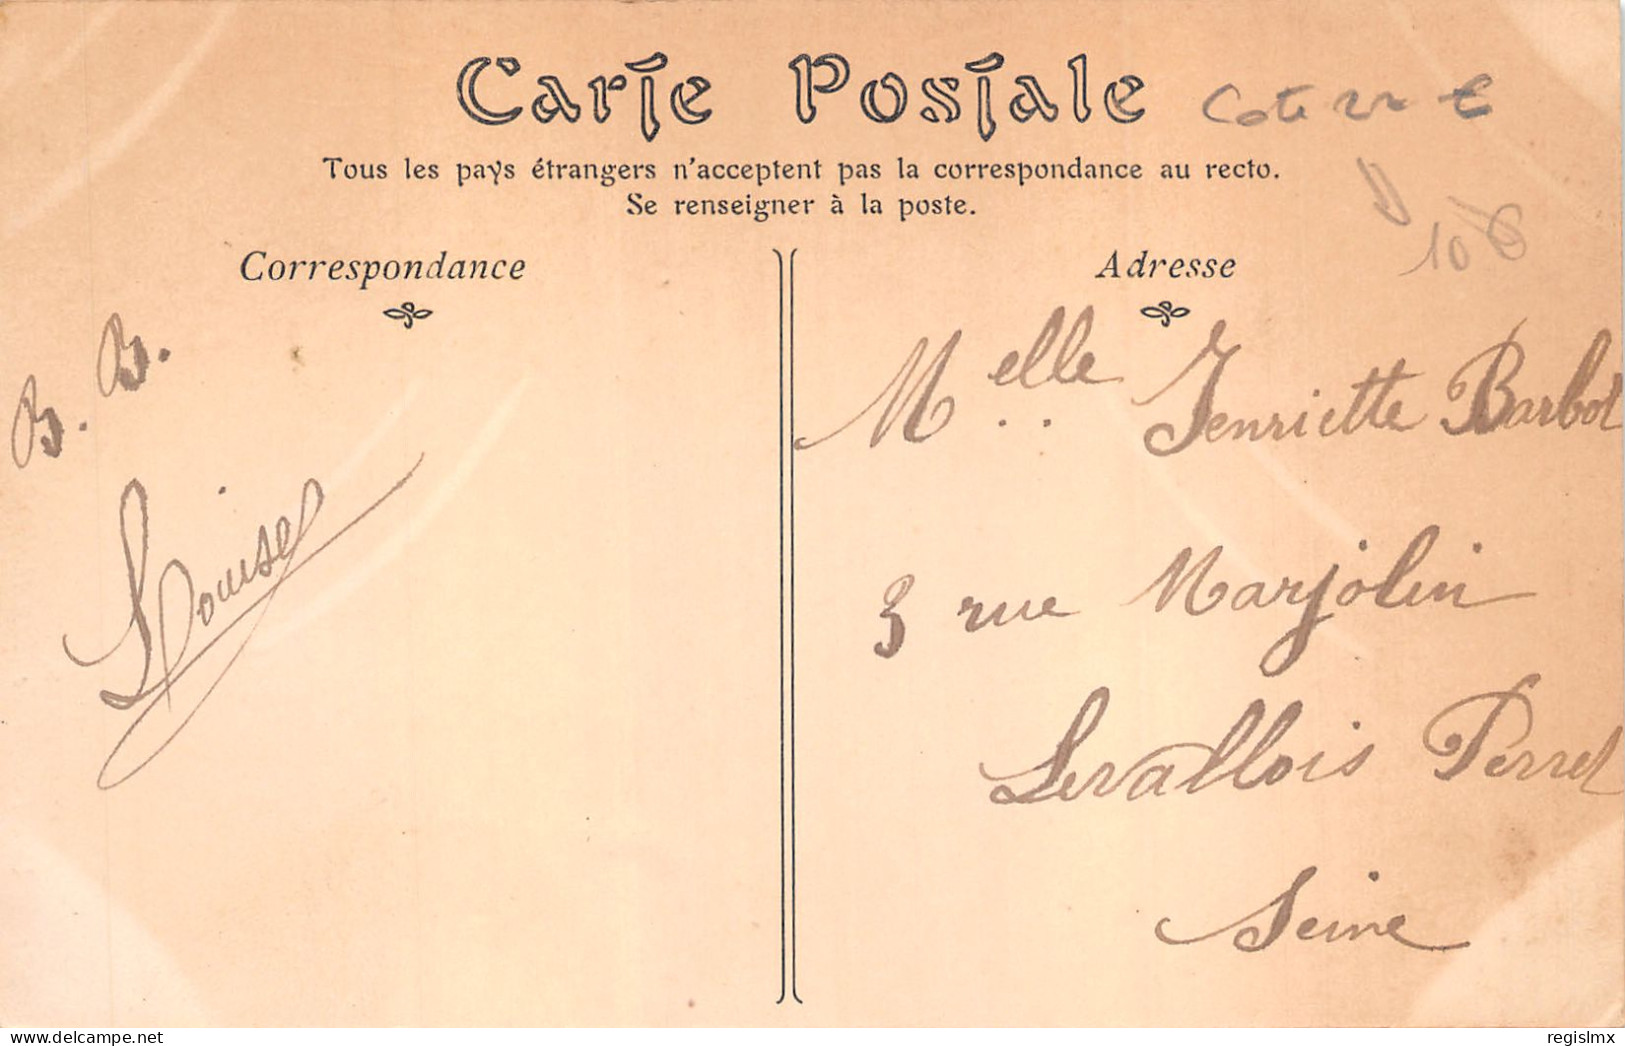 Carte Postale
Cote 22 €
Tous les pays étrangers n'acceptent pas la correspondance au recto.
Se renseigner à la poste.
10 €
Correspondance
Adresse
B. B.
Louise
Melle Henriette Barbot
3 rue Marjolin
Levallois Perret
Seine
delcampe.net
regislmx